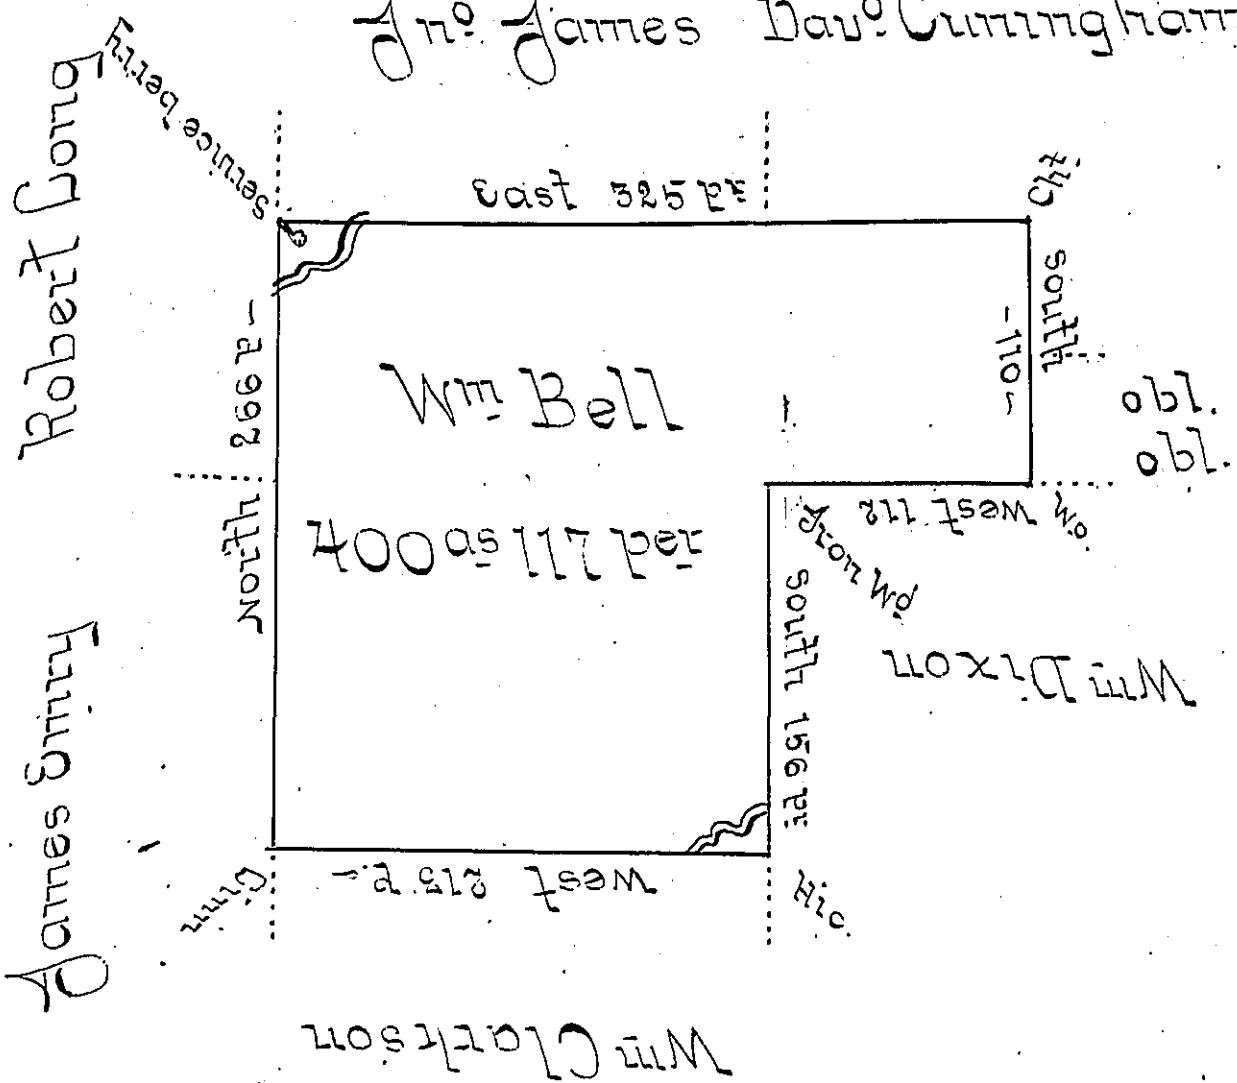 Jnº James Davº Cuningham
Robert Long
Service berry
East 325 pr
Cht
South
-110-
Wm Bell
400 as 111 per
North
266 p -
obl.
obl.
West 112
Wo.
Iron Wd
South 156 pr
Wm Dixon
James Euiny
Linn
West 213 p. -
Hic.
Wm Clarkson